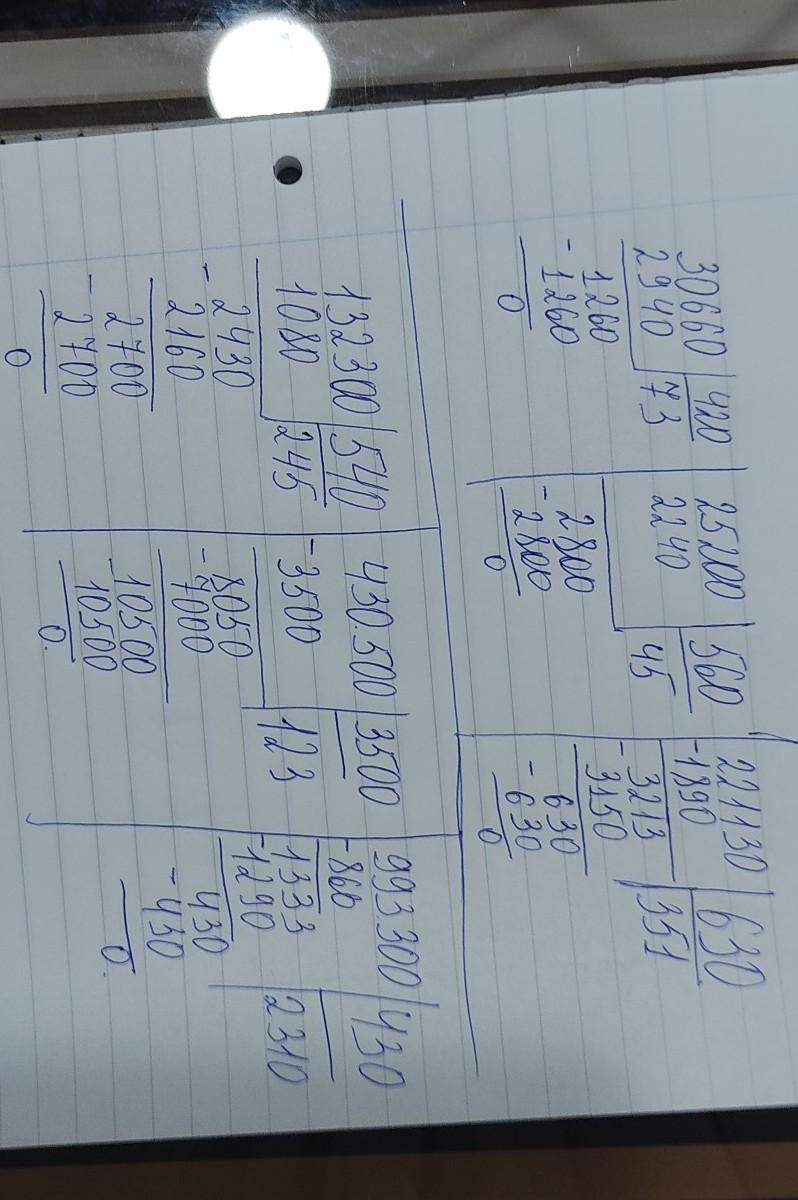 30660 | 420
2940 73
1260
- 1260
0
25200 | 560
2240 45
2800
- 2800
0
221130 | 630
- 1890 351
- 3213
3150
630
- 630
0
132300 | 540
1080 245
- 2430
2160
2700
- 2700
0
430.500 | 3500
- 3500 123
- 8050
7000
- 10500
10500
0.
993.300 | 430
- 860 2310
1333
- 1290
430
- 430
0.